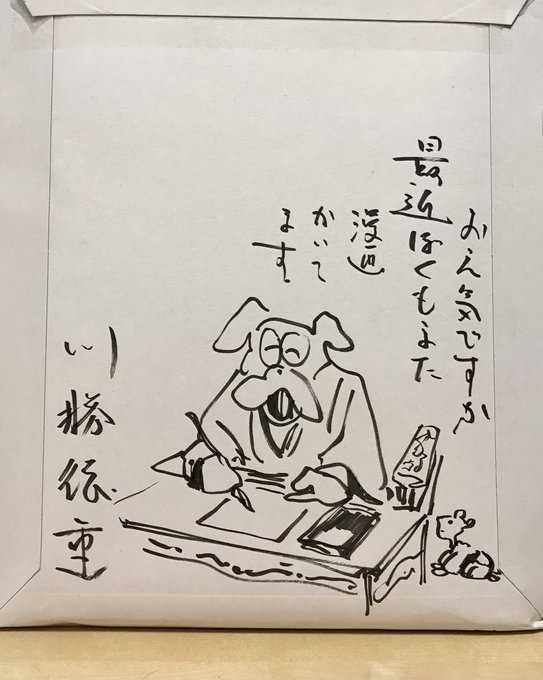 お元気ですか
最近ぼくもまた
漫画
かいて
ます
川勝徳重